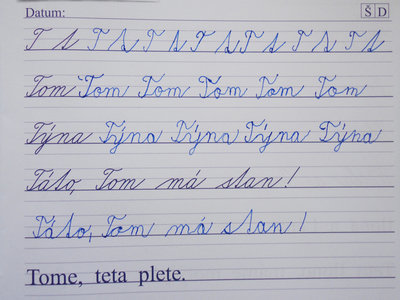 Datum: Š D
T t T t T t T t T t T t T t
Tom Tom Tom Tom Tom Tom
Týna Týna Týna Týna Týna
Táto, Tom má stan!
Táto, Tom má stan!
Tome, teta plete.